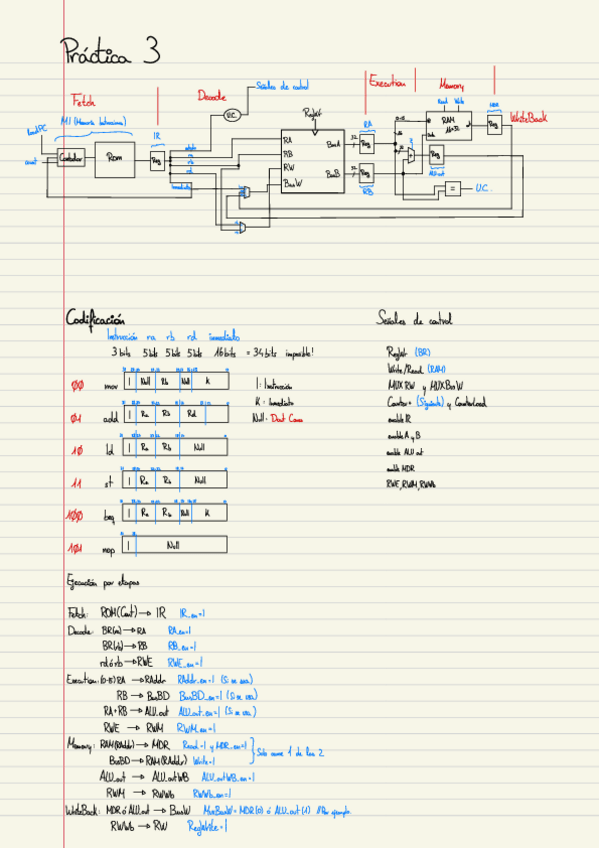 Práctica 3
Fetch
Decode
Señales de control
Execution
Memory
WriteBack
MI (Memoria Instrucciones)
IR
U.C.
RegWr
RA
Read Write
MDR
Contador
Rom
Reg
RA
RB
RW
BusW
BusA
BusB
32
32
Reg
Reg
RB
RAM
Reg
Reg
ALUout
=
U.C.
Codificación
Señales de control
Instrucción ra rb rd inmediato
3 bits 5 bits 5 bits 5 bits 16 bits = 34 bits imposible!
00 mov I Null Rb Null K
01 add I Ra Rb Rd
10 ld I Ra Rb Null
11 st I Ra Rb Null
100 beq I Ra Rb Null K
101 nop I Null
I: Instrucción
K: Inmediato
Null: Dont Care
RegWr (BR)
Write/Read (RAM)
MUXRW y MUXBusW
Contar+ (Siguiente) y CounterLoad
enable IR
enable A y B
enable ALUout
enable MDR
RWE, RWM, RWWb
Ejecución por etapas
Fetch: ROM(Cont) → IR IR_en=1
Decode: BR(ra) → RA RA_en=1
BR(rb) → RB RB_en=1
rd ó rb → RWE RWE_en=1
Execution: (0-15) RA → RAddr RAddr_en=1 (Si se usa)
RB → BusBD BusBD_en=1 (Si se usa)
RA+RB → ALU_out ALU_out_en=1 (Si se usa)
RWE → RWM RWM_en=1
Memory: RAM(RAddr) → MDR Read=1 y MDR_en=1
BusBD → RAM(RAddr) Write=1
Solo ocurre 1 de las 2
ALU_out → ALU_outWB ALU_outWB_en=1
RWM → RWWb RWWb_en=1
WriteBack: MDR ó ALUout → BusW MuxBusW = MDR(0) ó ALU_out(1) //Por ejemplo
RWWb → RW RegWrite=1